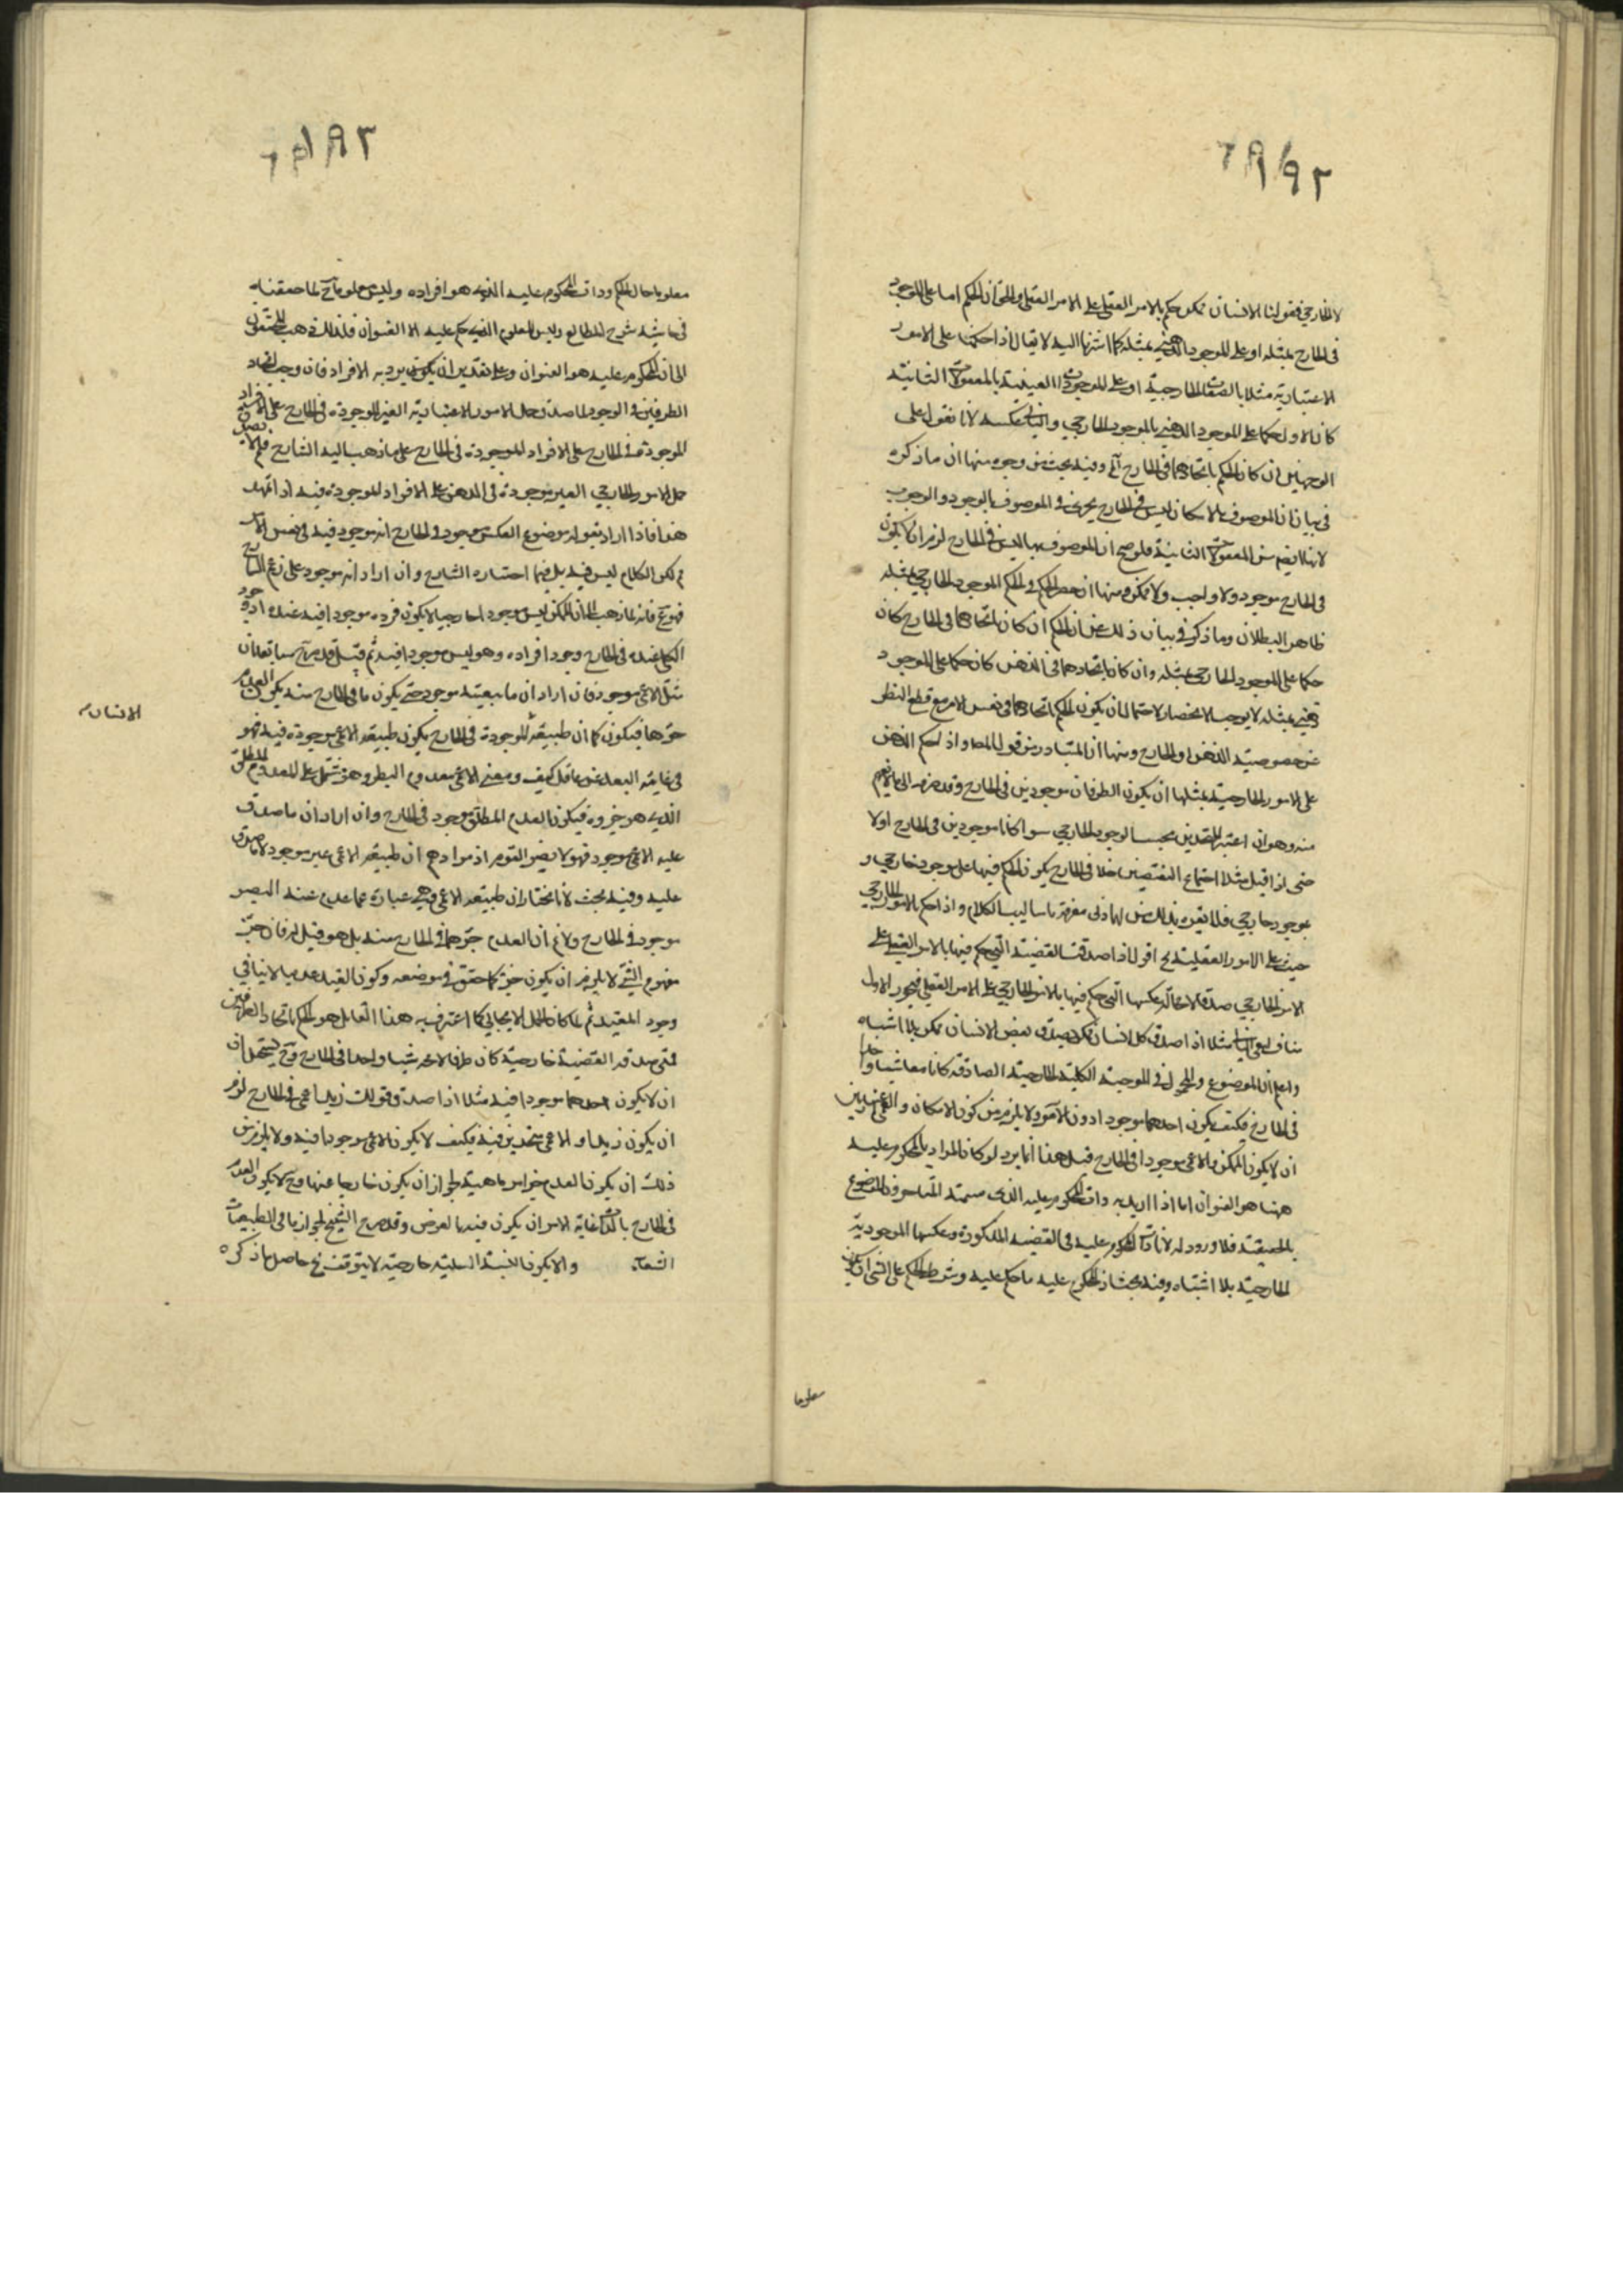 لا الخارجي فقولنا الانسان ممكن حكم بالامر العقلي على الامر العقلي والحق ان الحكم اما على الموجود
في الخارج بمثله او على الموجود الذهني بمثله كما اشرنا اليه لا يقال اذا حكمنا على الامور
الاعتبارية مثلا بالصفات الخارجية او على الموجودات العينية بالمعقولات الثانية
كان الاول حكما على الموجود الذهني بالموجود الخارجي والثاني عكسه لانا نقول على
الوجهين ان كان الحكم باتحادهما في الخارج وفيه بحث من وجوه منها ان ما ذكره
في بيان ان الموصوف بالامكان ليس في الخارج يجري في الموصوف بالوجود والوجوب
لانهما ايضا من المعقولات الثانية فلو صح ان الموصوف بها ليس في الخارج لزم ان لا يكون
في الخارج موجود ولا واجب ولا ممكن ومنها ان حصر الحكم في الحكم الموجود الخارجي بمثله
ظاهر البطلان وما ذكر في بيان ذلك من ان الحكم ان كان باتحادهما في الخارج كان
حكما على الموجود الخارجي بمثله وان كان باتحادهما في الذهن كان حكما على الموجود
ذهني بمثله لا يوجب الانحصار لاحتمال ان يكون الحكم باتحادهما في نفس الامر مع قطع النظر
عن خصوصية الذهن او الخارج ومنها ان المتبادر من قول المصـ واذا حكم الذهن
على الامور الخارجية بمثلها ان يكون الطرفان موجودين في الخارج وقد صرفه الى ما لا يفهم
منه وهو ان اعتبر المتحدين بحسب الوجود الخارجي سوا كانا موجودين في الخارج اولا
حتى اذا قيل مثلا اجتماع النقيضين خلا في الخارج يكون الحكم فيها على موجود خارجي و
بموجود خارجي فلا يتفوه بذلك من له ادنى معرفة باساليب الكلام واذا حكم بالامور الخارجي
حيث على الامور العقلية اقول اذا صدقت القضية التي حكم فيها بالامر العقلي على
الامر الخارجي صدق لا محالة عكسها التي حكم فيها بالامر الخارجي على الامر العقلي فتجويز الاول
مناف لنفي الثاني مثلا اذا صدق كل انسان ممكن صدق بعض الانسان ممكن بلا اشتباه
واعلم ان الموضوع والمحمول في الموجبة الكلية الخارجية الصادقة كانا معا شيئا واحدا
في الخارج فكيف يكون احدهما موجودا دون الاخر ولا يلزم من كون الامكان والعمى عدميين
ان لا يكون الممكن والاعمى موجودا في الخارج قيل هذا انما يرد لو كان المراد بالمحكوم عليه
ههنا هو العنوان اما اذا اريد به ذات المحكوم عليه الذي سمته المتاخرون الموضوع
بالحقيقة فلا ورود له لان ذات المحكوم عليه في القضية المذكورة وعكسها الموجودية
الخارجية بلا اشتباه وفيه بحث اذ المحكوم عليه ما حكم عليه وشرط الحكم على الشي ان يكون
معلوما
معلوما حال الحكم وذات المحكوم عليه الذي هو افراده وليس معلوما لما حققناه
في حاشية شرح المطالع وليس المعلوم الذي حكم عليه الا العنوان فلذلك ذهب المحققون
الى ان المحكوم عليه هو العنوان وعلى تقدير ان يكون يريد به الافراد فان وجب اتحاد
الطرفين في الوجود لما صدق حمل الامور الاعتبارية الغير الموجودة في الخارج على الافراد
الموجودة في الخارج على الافراد الموجودة في الخارج على ما ذهب اليه الشارح فلم لا يصدق
حمل الامور الخارجي الغير موجودة في الذهن على الافراد الموجودة فيه اذا تمهد
هذا فاذا اراد بقوله موضوع العكس موجود في الخارج انه موجود فيه في نفس الامر
فم لكن الكلام ليس فيه بل فيما اختاره الشارح وان اراد انه موجود على زعم الشارح
فهو مم فانه لما ذهب الى ان الممكن ليس موجودا خارجيا لا يكون فرده موجودا فيه عنده اذ وجود
الكلي عنده في الخارج وجود افراده وهو ليس موجودا فيه ثم قيل قد مر سابقا ان
مثل الاعمى موجود فان اراد ان ما بيعته موجود حتى يكون ما في الخارج منه يكون العدم
جزءها فيكون كما ان طبيعة الموجودة في الخارج يكون طبيعة الاعمى موجودة فيه فهو
الانسان
في غاية البعد عن عاقل كيف ومعنى الاعمى معدوم البصر وهو مشتمل على المعدوم المطلق
الذي هو جزوه فيكون العدم المطلق موجود في الخارج وان اراد ان ما صدق
عليه الاعمى موجود فهو لا يضر القوم اذ مرادهم ان طبيعة الاعمى غير موجود لا ما صدق
عليه وفيه بحث لانا نختار ان طبيعة الاعمى وهي عبارة عما عدم عنه البصر
موجود في الخارج ولا نم ان العدم جزءها في الخارج منه بل هو قيل له فان جزء
مفهوم الشي لا يلزم ان يكون جزءه كما حقق في موضعه وكون القيد عدميا لا ينافي
وجود المقيد ثم لما كان الحمل الايجابي كما اعترف به هذا القايل هو الحكم باتحاد الطرفين
فمتى صدقه القضية خارجية كان طرفا الاخر شيئا واحدا في الخارج وح يستحيل ان
ان لا يكون احدهما موجودا فيه مثلا اذا صدق قولك زيد اعمى في الخارج لزم
ان يكون زيد او الاعمى متحدين فيه فكيف لا يكون الاعمى موجودا فيه ولا يلزم من
ذلك ان يكون العدم جزا من ماهيته لجواز ان يكون خارجا عنها وح لا يكون العدم
في الخارج بالذات غاية الامر ان يكون فيه بالعرض وقد صرح الشيخ بجواز ما في الطبيعيات
الشفاء والا يكون النسبة السلبية خارجية لا يتوقف حاصل ما ذكره